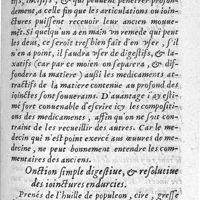 tifs, incisifs, & qui peuuent penetrer profon-
dement, a celle fin que les articulations ou ioin-
ctures puissent receuoir leur ancien mouue-
ment. Si quelqu'un a en main un remede qui per
les deux, ce seroit tresbien fait d'en user, s'il
n'en a point, il faudra user de digestifs, & la-
xatifs (car par ce moien on separera, & dif-
fondera la matiere) aussi les medicaments at-
tractifs de la matiere contenue au profond des
ioinctures endurcies. D'auantage i'ay esti-
mé fort conuenable d'escrire icy les compositi-
ons des medicaments, affin qu'on ne soit con-
traint de les recueillir des autres. Car le me-
decin qui n'est point exercé aus œuures de mede-
cine, ne peut bonnement entendre les commen-
taires des anciens.
Onction simple digestiue, & resolutiue
des ioinctures endurcies.
Prenés de l'huille de populeon, cire, gresse